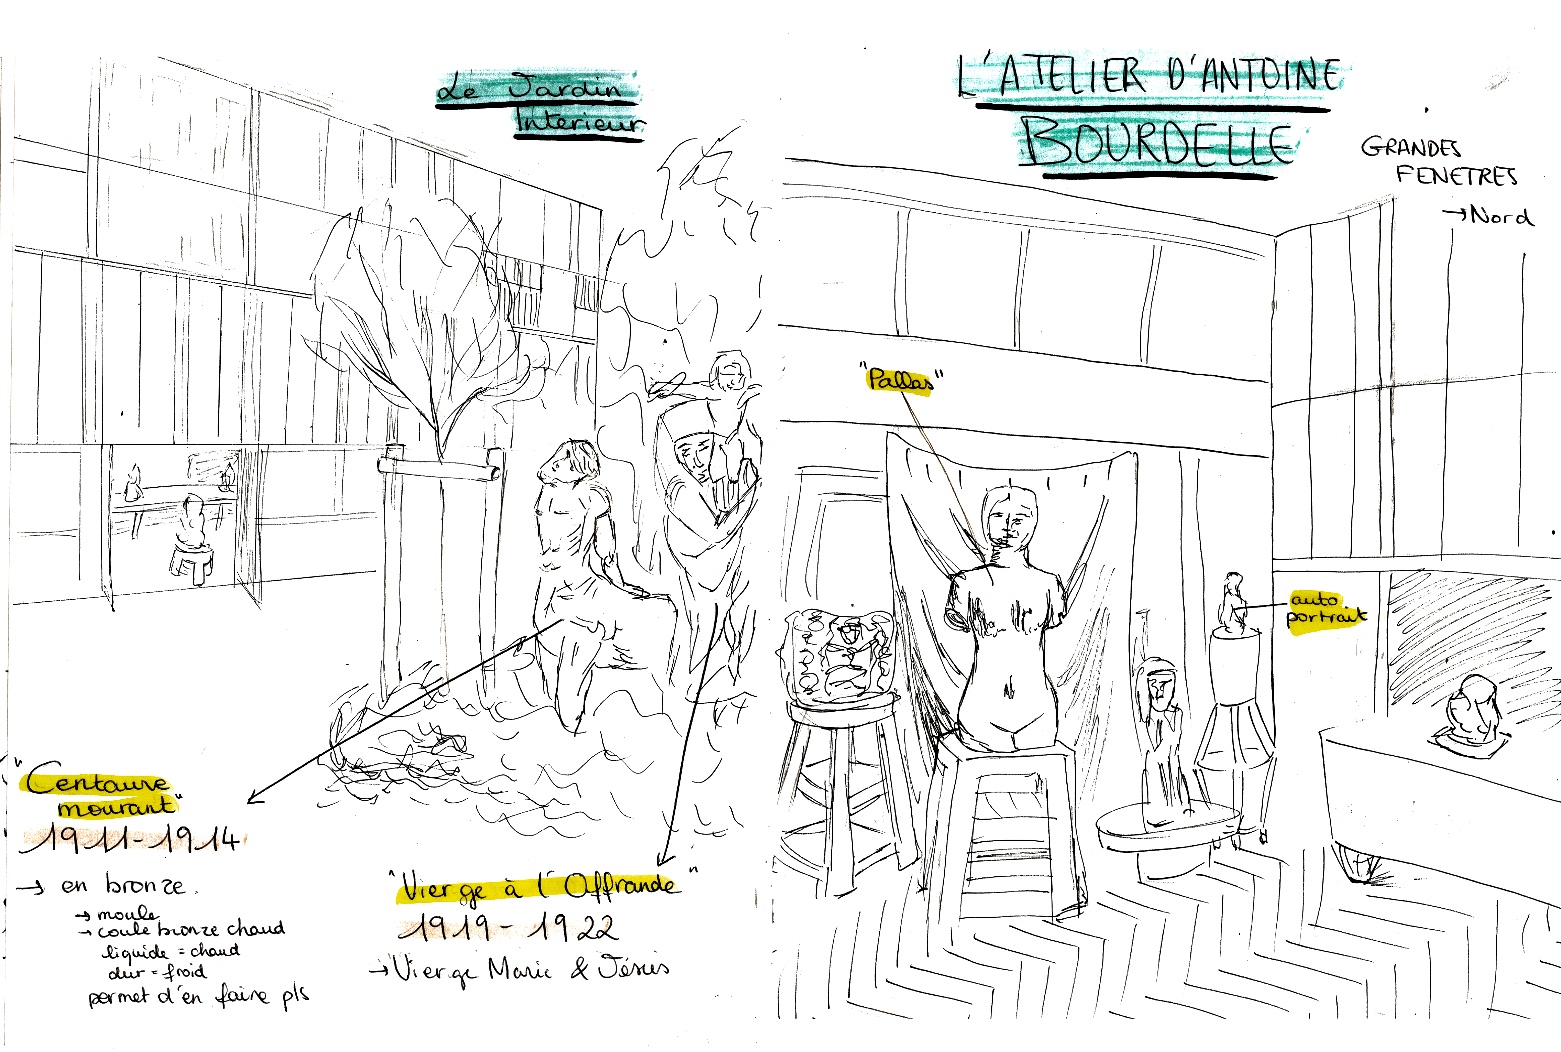 Le Jardin
Interieur
"Centaure
mourant"
1911-1914
→ en bronze.
→ moule
→ coule bronze chaud
liquide = chaud
dur = froid
permet d'en faire pls
"Vierge à l'Offrande"
1919-1922
→ Vierge Marie & Jésus
L'ATELIER D'ANTOINE
BOURDELLE
GRANDES
FENETRES
→ Nord
"Pallas"
auto
portrait